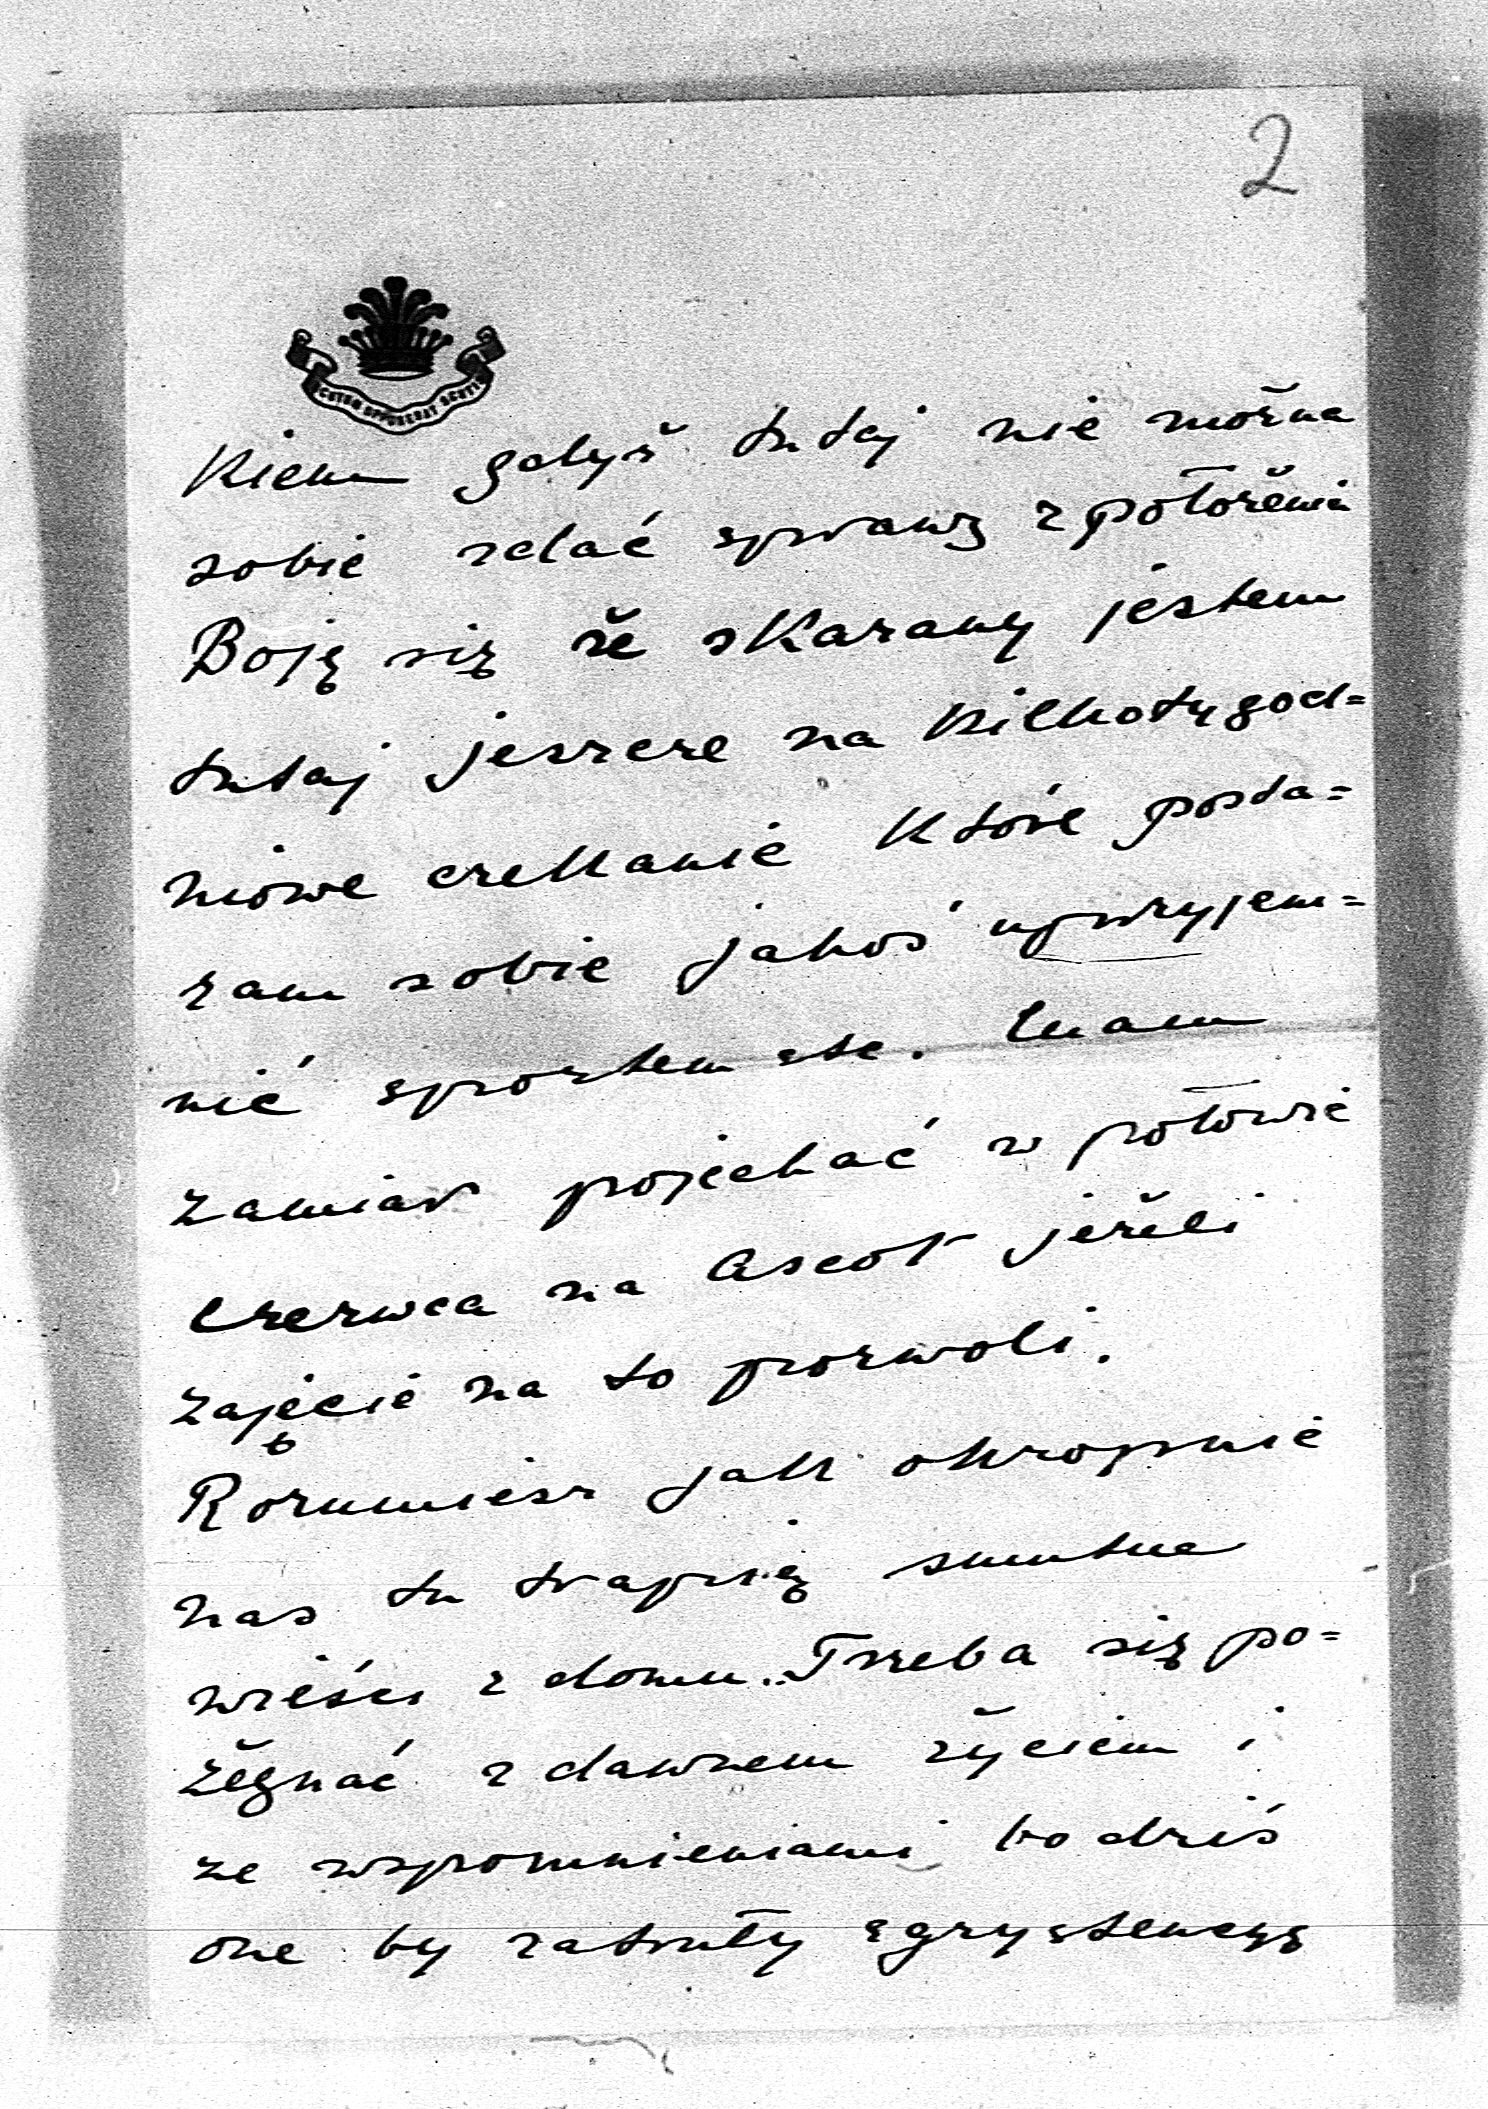 2
SCUTUM OPPONEBAT SCUTIS
kiem gdyż tutaj nie można
sobie zdać sprawy z położenia
Boję się że skazany jestem
tutaj jeszcze na kilkotygod=
niowe czekanie które posta=
ram sobie jakoś uprzyjem=
nić sportem etc. Mam
zamiar pojechać w połowie
czerwca na Ascot jeżeli
zajęcie na to pozwoli.
Rozumiesz jak okropnie
nas tu trapią smutne
wieści z domu. Trzeba się po=
żegnać z dawnem życiem i
ze wspomnieniami bo dziś
one by zatruły egzystencyę